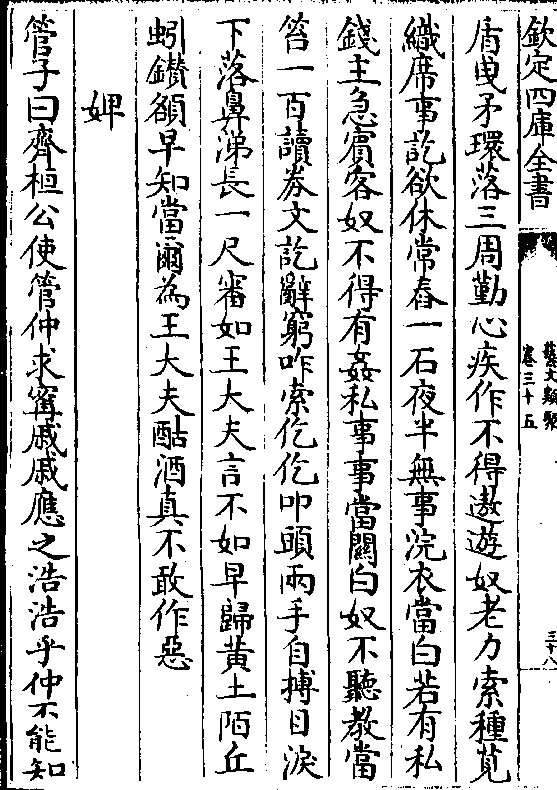 欽定四庫全書
藝文類聚
卷三十五
三十八
盾曳矛環落三周勤心疾作不得遨遊奴老力索種莧
織席事訖欲休常舂一石夜半無事浣衣當白若有私
錢主急賓客奴不得有姦私事事當關白奴不聽教當
笞一百讀券文訖辭窮咋索仡仡叩頭兩手自搏目淚
下落鼻涕長一尺審如王大夫言不如早歸黃土陌丘
蚓鑚額早知當爾為王大夫酤酒真不敢作惡
婢
管子曰齊桓公使管仲求甯戚戚應之浩浩乎仲不能知